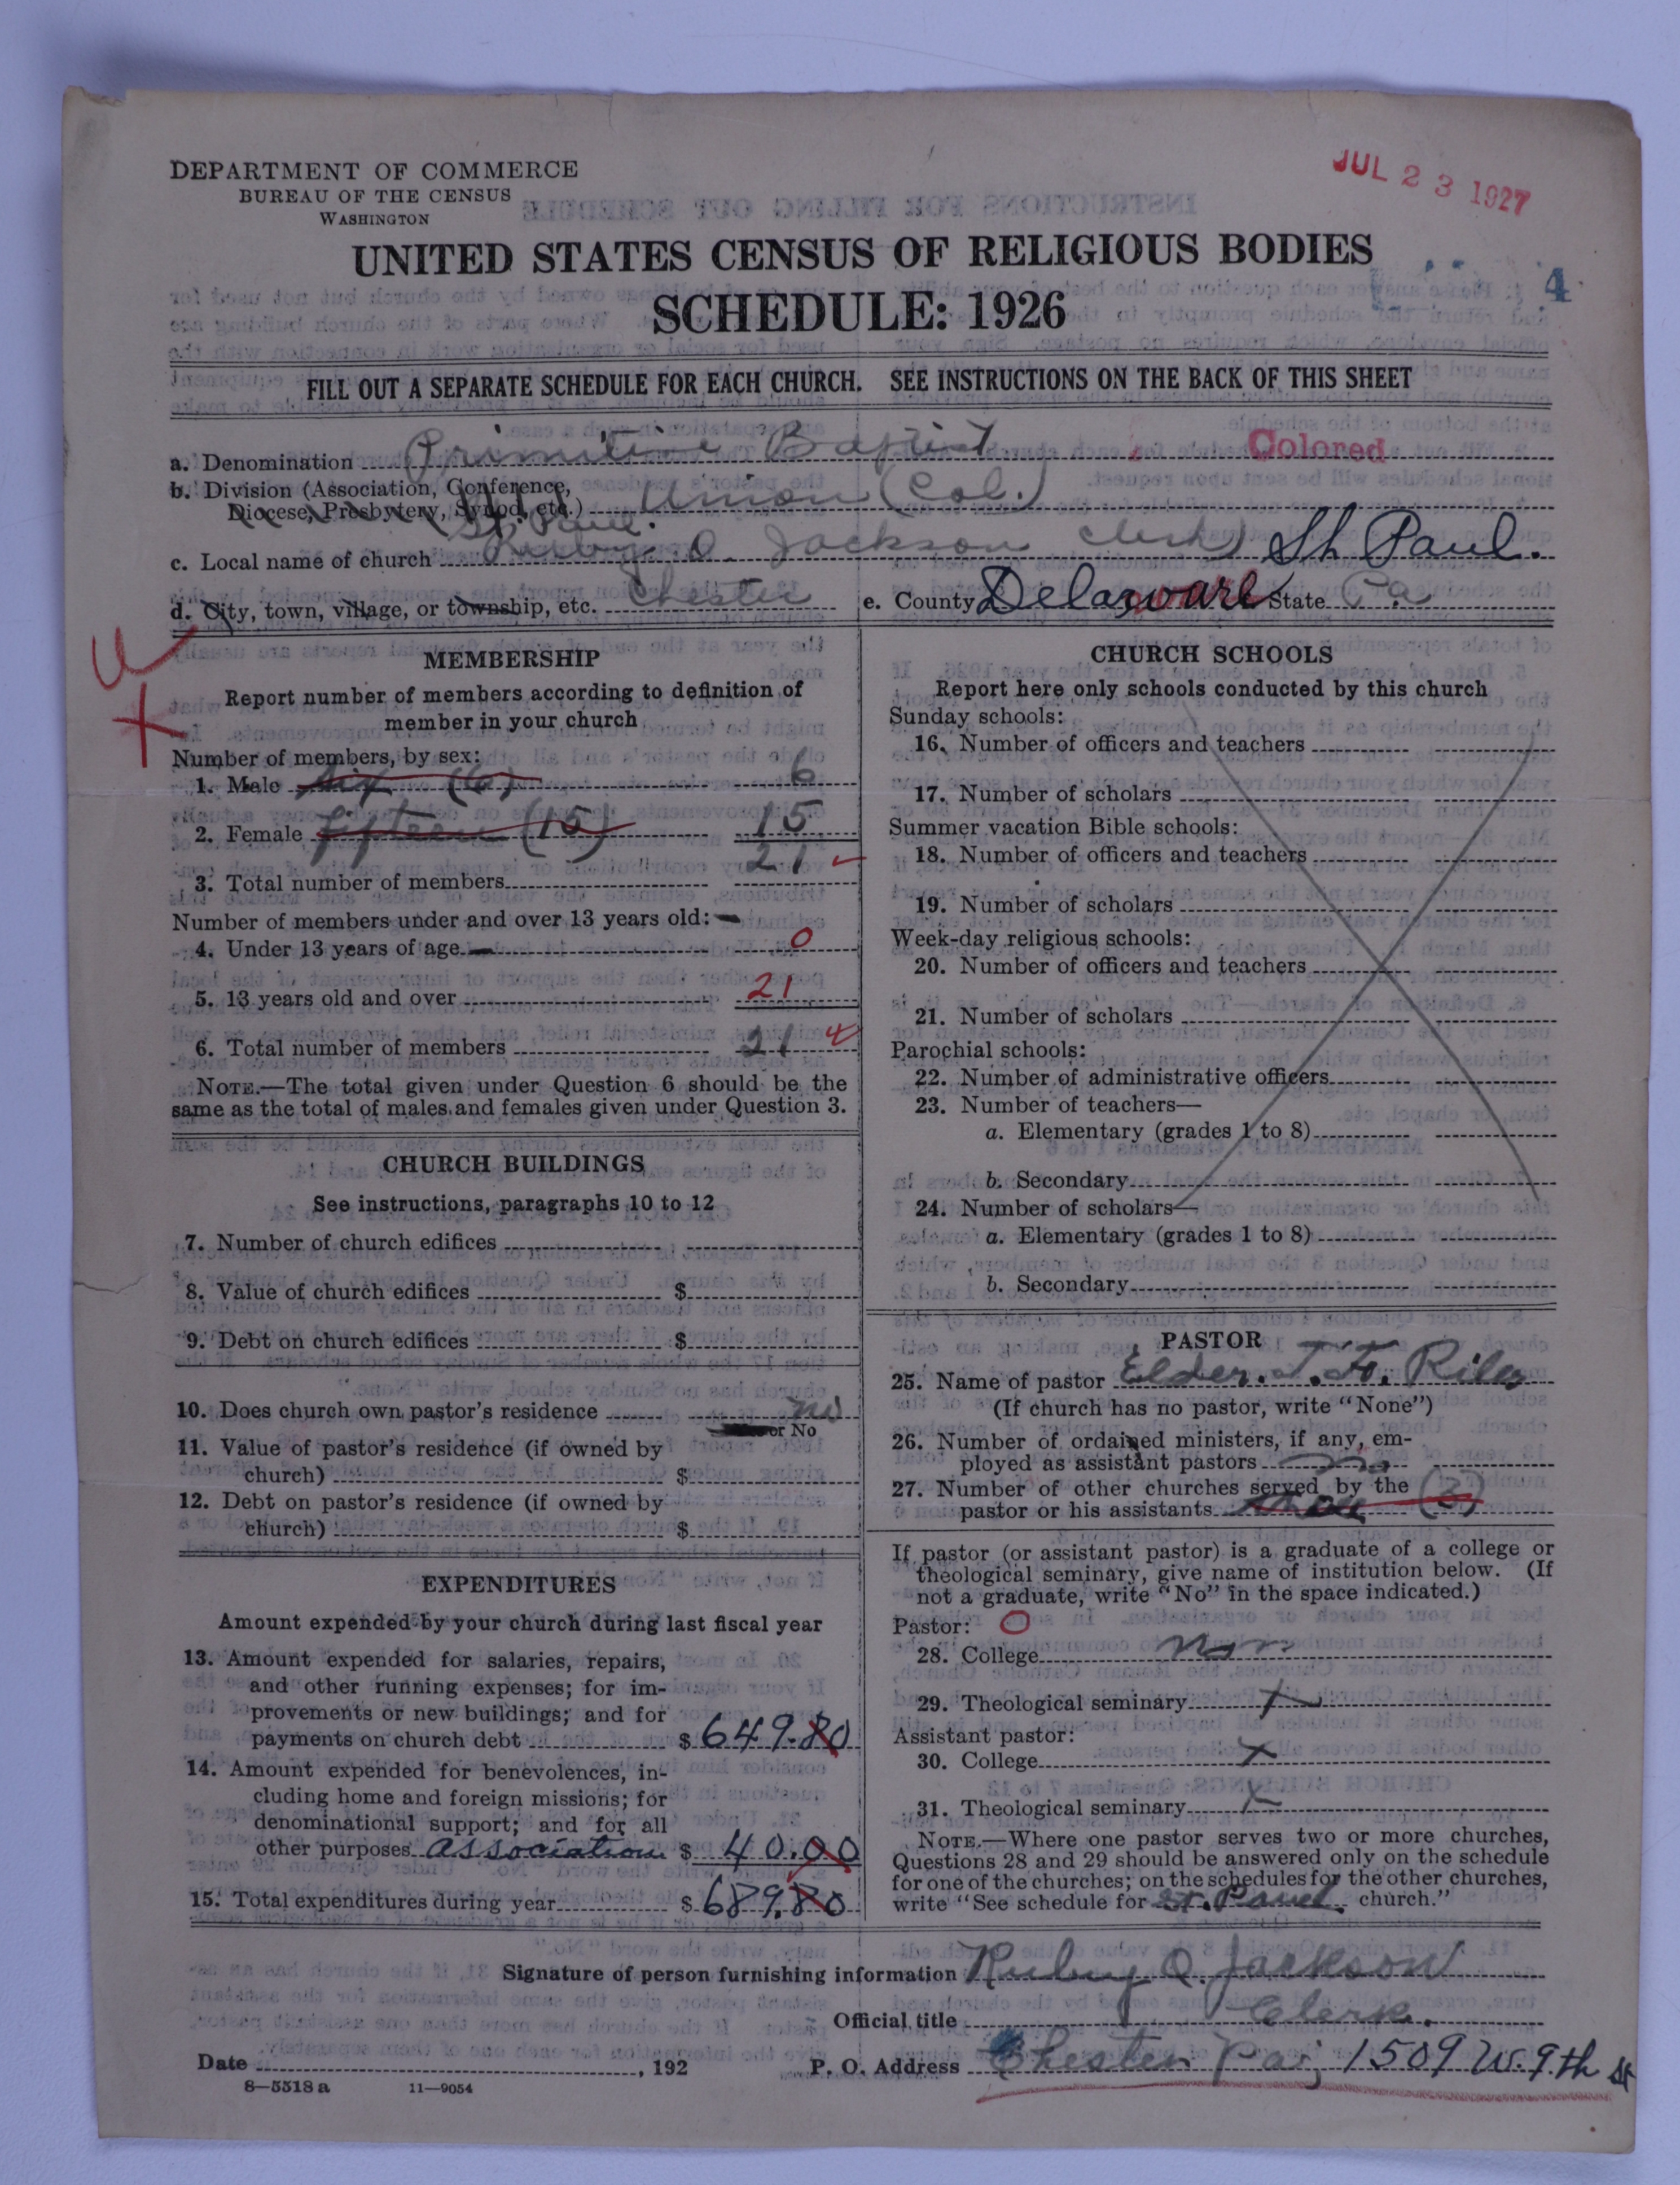 DEPARTMENT OF COMMERCE
BUREAU OF THE CENSUS
WASHINGTON
JUL 23 1927
UNITED STATES CENSUS OF RELIGIOUS BODIES
SCHEDULE: 1926
4
FILL OUT A SEPARATE SCHEDULE FOR EACH CHURCH. SEE INSTRUCTIONS ON THE BACK OF THIS SHEET
a. Denomination Primitive Baptist Colored
b. Division (Association, Conference,
Diocese, Presbytery, Synod, etc.) Union (Col.)
St. Paul.
c. Local name of church Ruby Q. Jackson Clerk) St Paul.
d. City, town, village, or township, etc. Chester e. County Delaware State Pa
MEMBERSHIP
Report number of members according to definition of
member in your church
Number of members, by sex:
1. Male six (6) 6
2. Female fifteen (15) 15
3. Total number of members 21
Number of members under and over 13 years old:
4. Under 13 years of age 0
5. 13 years old and over 21
6. Total number of members 21
NOTE.—The total given under Question 6 should be the
same as the total of males and females given under Question 3.
CHURCH BUILDINGS
See instructions, paragraphs 10 to 12
7. Number of church edifices
8. Value of church edifices $
9. Debt on church edifices $
10. Does church own pastor's residence no
or No
11. Value of pastor's residence (if owned by
church) $
12. Debt on pastor's residence (if owned by
church) $
EXPENDITURES
Amount expended by your church during last fiscal year
13. Amount expended for salaries, repairs,
and other running expenses; for im-
provements or new buildings; and for
payments on church debt $ 649.80
14. Amount expended for benevolences, in-
cluding home and foreign missions; for
denominational support; and for all
other purposes association $ 40.00
15. Total expenditures during year $ 689.80
CHURCH SCHOOLS
Report here only schools conducted by this church
Sunday schools:
16. Number of officers and teachers
17. Number of scholars
Summer vacation Bible schools:
18. Number of officers and teachers
19. Number of scholars
Week-day religious schools:
20. Number of officers and teachers
21. Number of scholars
Parochial schools:
22. Number of administrative officers
23. Number of teachers—
a. Elementary (grades 1 to 8)
b. Secondary
24. Number of scholars—
a. Elementary (grades 1 to 8)
b. Secondary
PASTOR
25. Name of pastor Elder. T. H. Riley
(If church has no pastor, write "None")
26. Number of ordained ministers, if any, em-
ployed as assistant pastors no
27. Number of other churches served by the (3)
pastor or his assistants
If pastor (or assistant pastor) is a graduate of a college or
theological seminary, give name of institution below. (If
not a graduate, write "No" in the space indicated.)
Pastor: O
28. College
29. Theological seminary x
Assistant pastor:
30. College x
31. Theological seminary x
NOTE.—Where one pastor serves two or more churches,
Questions 28 and 29 should be answered only on the schedule
for one of the churches; on the schedules for the other churches,
write "See schedule for St. Paul. church."
Signature of person furnishing information Ruby Q. Jackson
Official title Clerk.
Date , 192 P. O. Address Chester Pa; 1509 W. 9th St
8—5518 a 11—9054